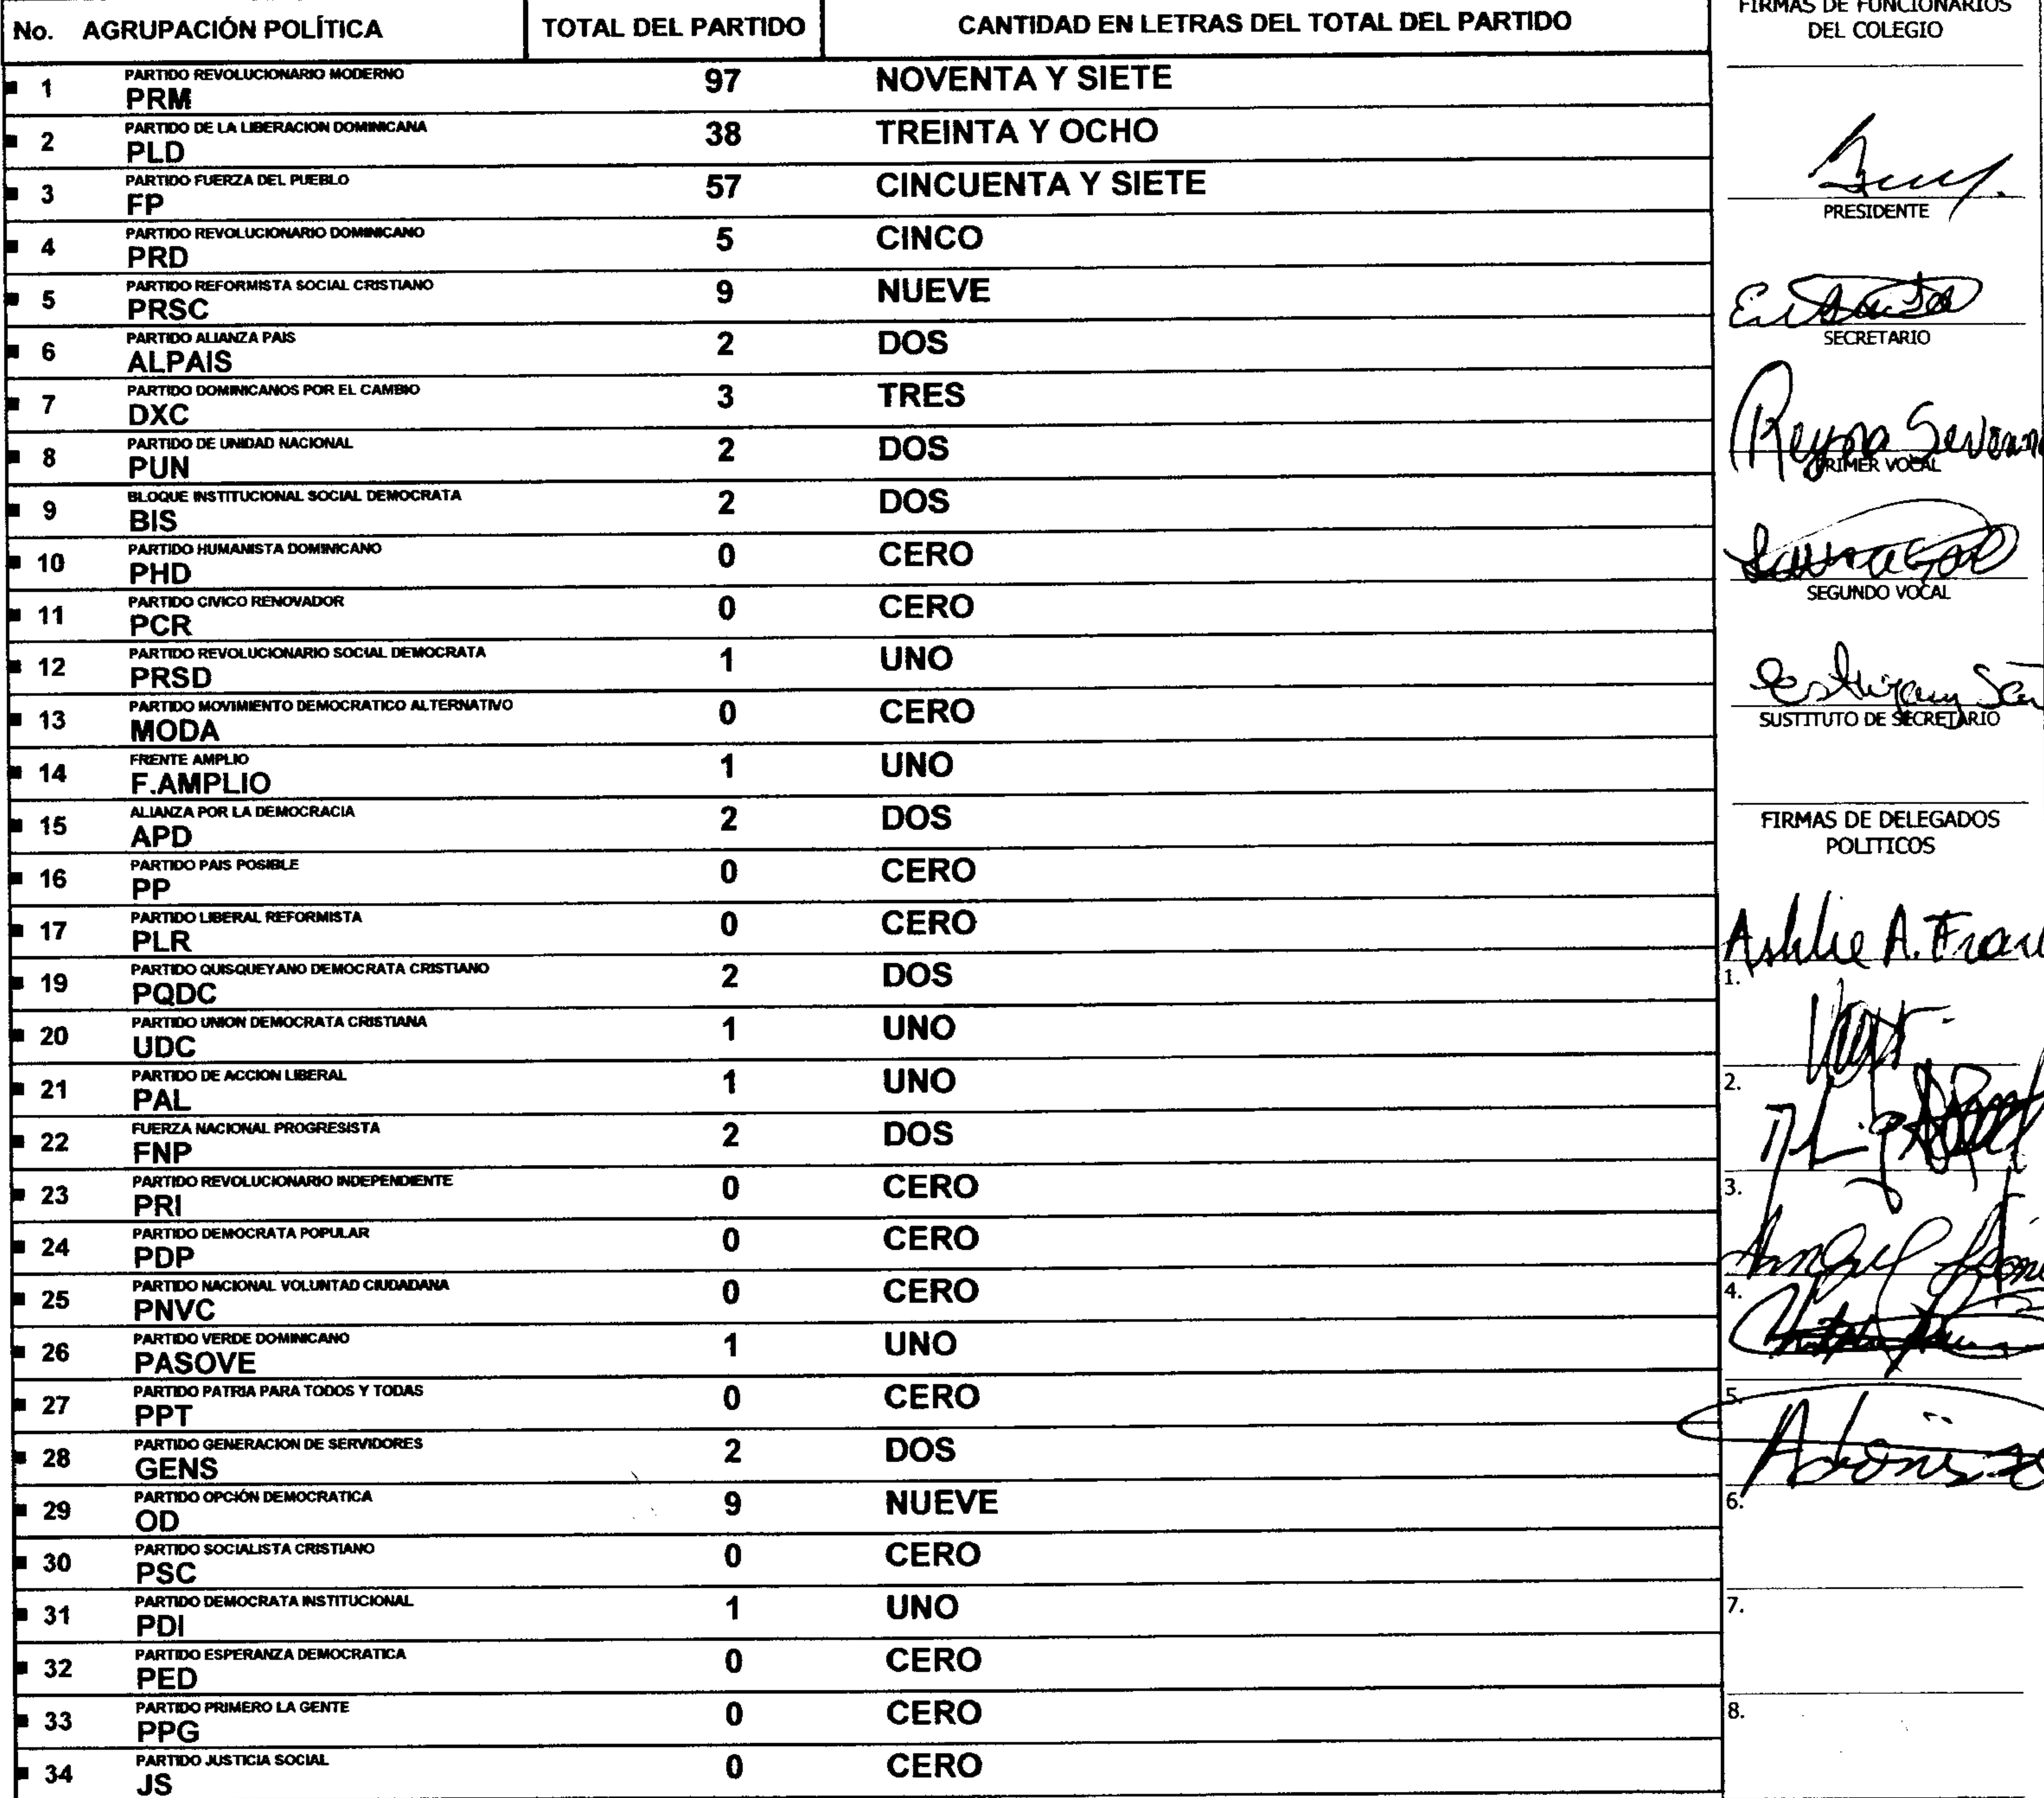 No. AGRUPACIÓN POLÍTICA TOTAL DEL PARTIDO CANTIDAD EN LETRAS DEL TOTAL DEL PARTIDO
1 PARTIDO REVOLUCIONARIO MODERNO
PRM 97 NOVENTA Y SIETE
2 PARTIDO DE LA LIBERACION DOMINICANA
PLD 38 TREINTA Y OCHO
3 PARTIDO FUERZA DEL PUEBLO
FP 57 CINCUENTA Y SIETE
4 PARTIDO REVOLUCIONARIO DOMINICANO
PRD 5 CINCO
5 PARTIDO REFORMISTA SOCIAL CRISTIANO
PRSC 9 NUEVE
6 PARTIDO ALIANZA PAIS
ALPAIS 2 DOS
7 PARTIDO DOMINICANOS POR EL CAMBIO
DXC 3 TRES
8 PARTIDO DE UNIDAD NACIONAL
PUN 2 DOS
9 BLOQUE INSTITUCIONAL SOCIAL DEMOCRATA
BIS 2 DOS
10 PARTIDO HUMANISTA DOMINICANO
PHD 0 CERO
11 PARTIDO CIVICO RENOVADOR
PCR 0 CERO
12 PARTIDO REVOLUCIONARIO SOCIAL DEMOCRATA
PRSD 1 UNO
13 PARTIDO MOVIMIENTO DEMOCRATICO ALTERNATIVO
MODA 0 CERO
14 FRENTE AMPLIO
F.AMPLIO 1 UNO
15 ALIANZA POR LA DEMOCRACIA
APD 2 DOS
16 PARTIDO PAIS POSIBLE
PP 0 CERO
17 PARTIDO LIBERAL REFORMISTA
PLR 0 CERO
19 PARTIDO QUISQUEYANO DEMOCRATA CRISTIANO
PQDC 2 DOS
20 PARTIDO UNION DEMOCRATA CRISTIANA
UDC 1 UNO
21 PARTIDO DE ACCION LIBERAL
PAL 1 UNO
22 FUERZA NACIONAL PROGRESISTA
FNP 2 DOS
23 PARTIDO REVOLUCIONARIO INDEPENDIENTE
PRI 0 CERO
24 PARTIDO DEMOCRATA POPULAR
PDP 0 CERO
25 PARTIDO NACIONAL VOLUNTAD CIUDADANA
PNVC 0 CERO
26 PARTIDO VERDE DOMINICANO
PASOVE 1 UNO
27 PARTIDO PATRIA PARA TODOS Y TODAS
PPT 0 CERO
28 PARTIDO GENERACION DE SERVIDORES
GENS 2 DOS
29 PARTIDO OPCIÓN DEMOCRATICA
OD 9 NUEVE
30 PARTIDO SOCIALISTA CRISTIANO
PSC 0 CERO
31 PARTIDO DEMOCRATA INSTITUCIONAL
PDI 1 UNO
32 PARTIDO ESPERANZA DEMOCRATICA
PED 0 CERO
33 PARTIDO PRIMERO LA GENTE
PPG 0 CERO
34 PARTIDO JUSTICIA SOCIAL
JS 0 CERO
FIRMAS DE FUNCIONARIOS
DEL COLEGIO
PRESIDENTE
SECRETARIO
Reyna
PRIMER VOCAL
SEGUNDO VOCAL
SUSTITUTO DE SECRETARIO
FIRMAS DE DELEGADOS
POLITICOS
Ashlie A.
1.
2.
3.
4.
5.
6.
7.
8.